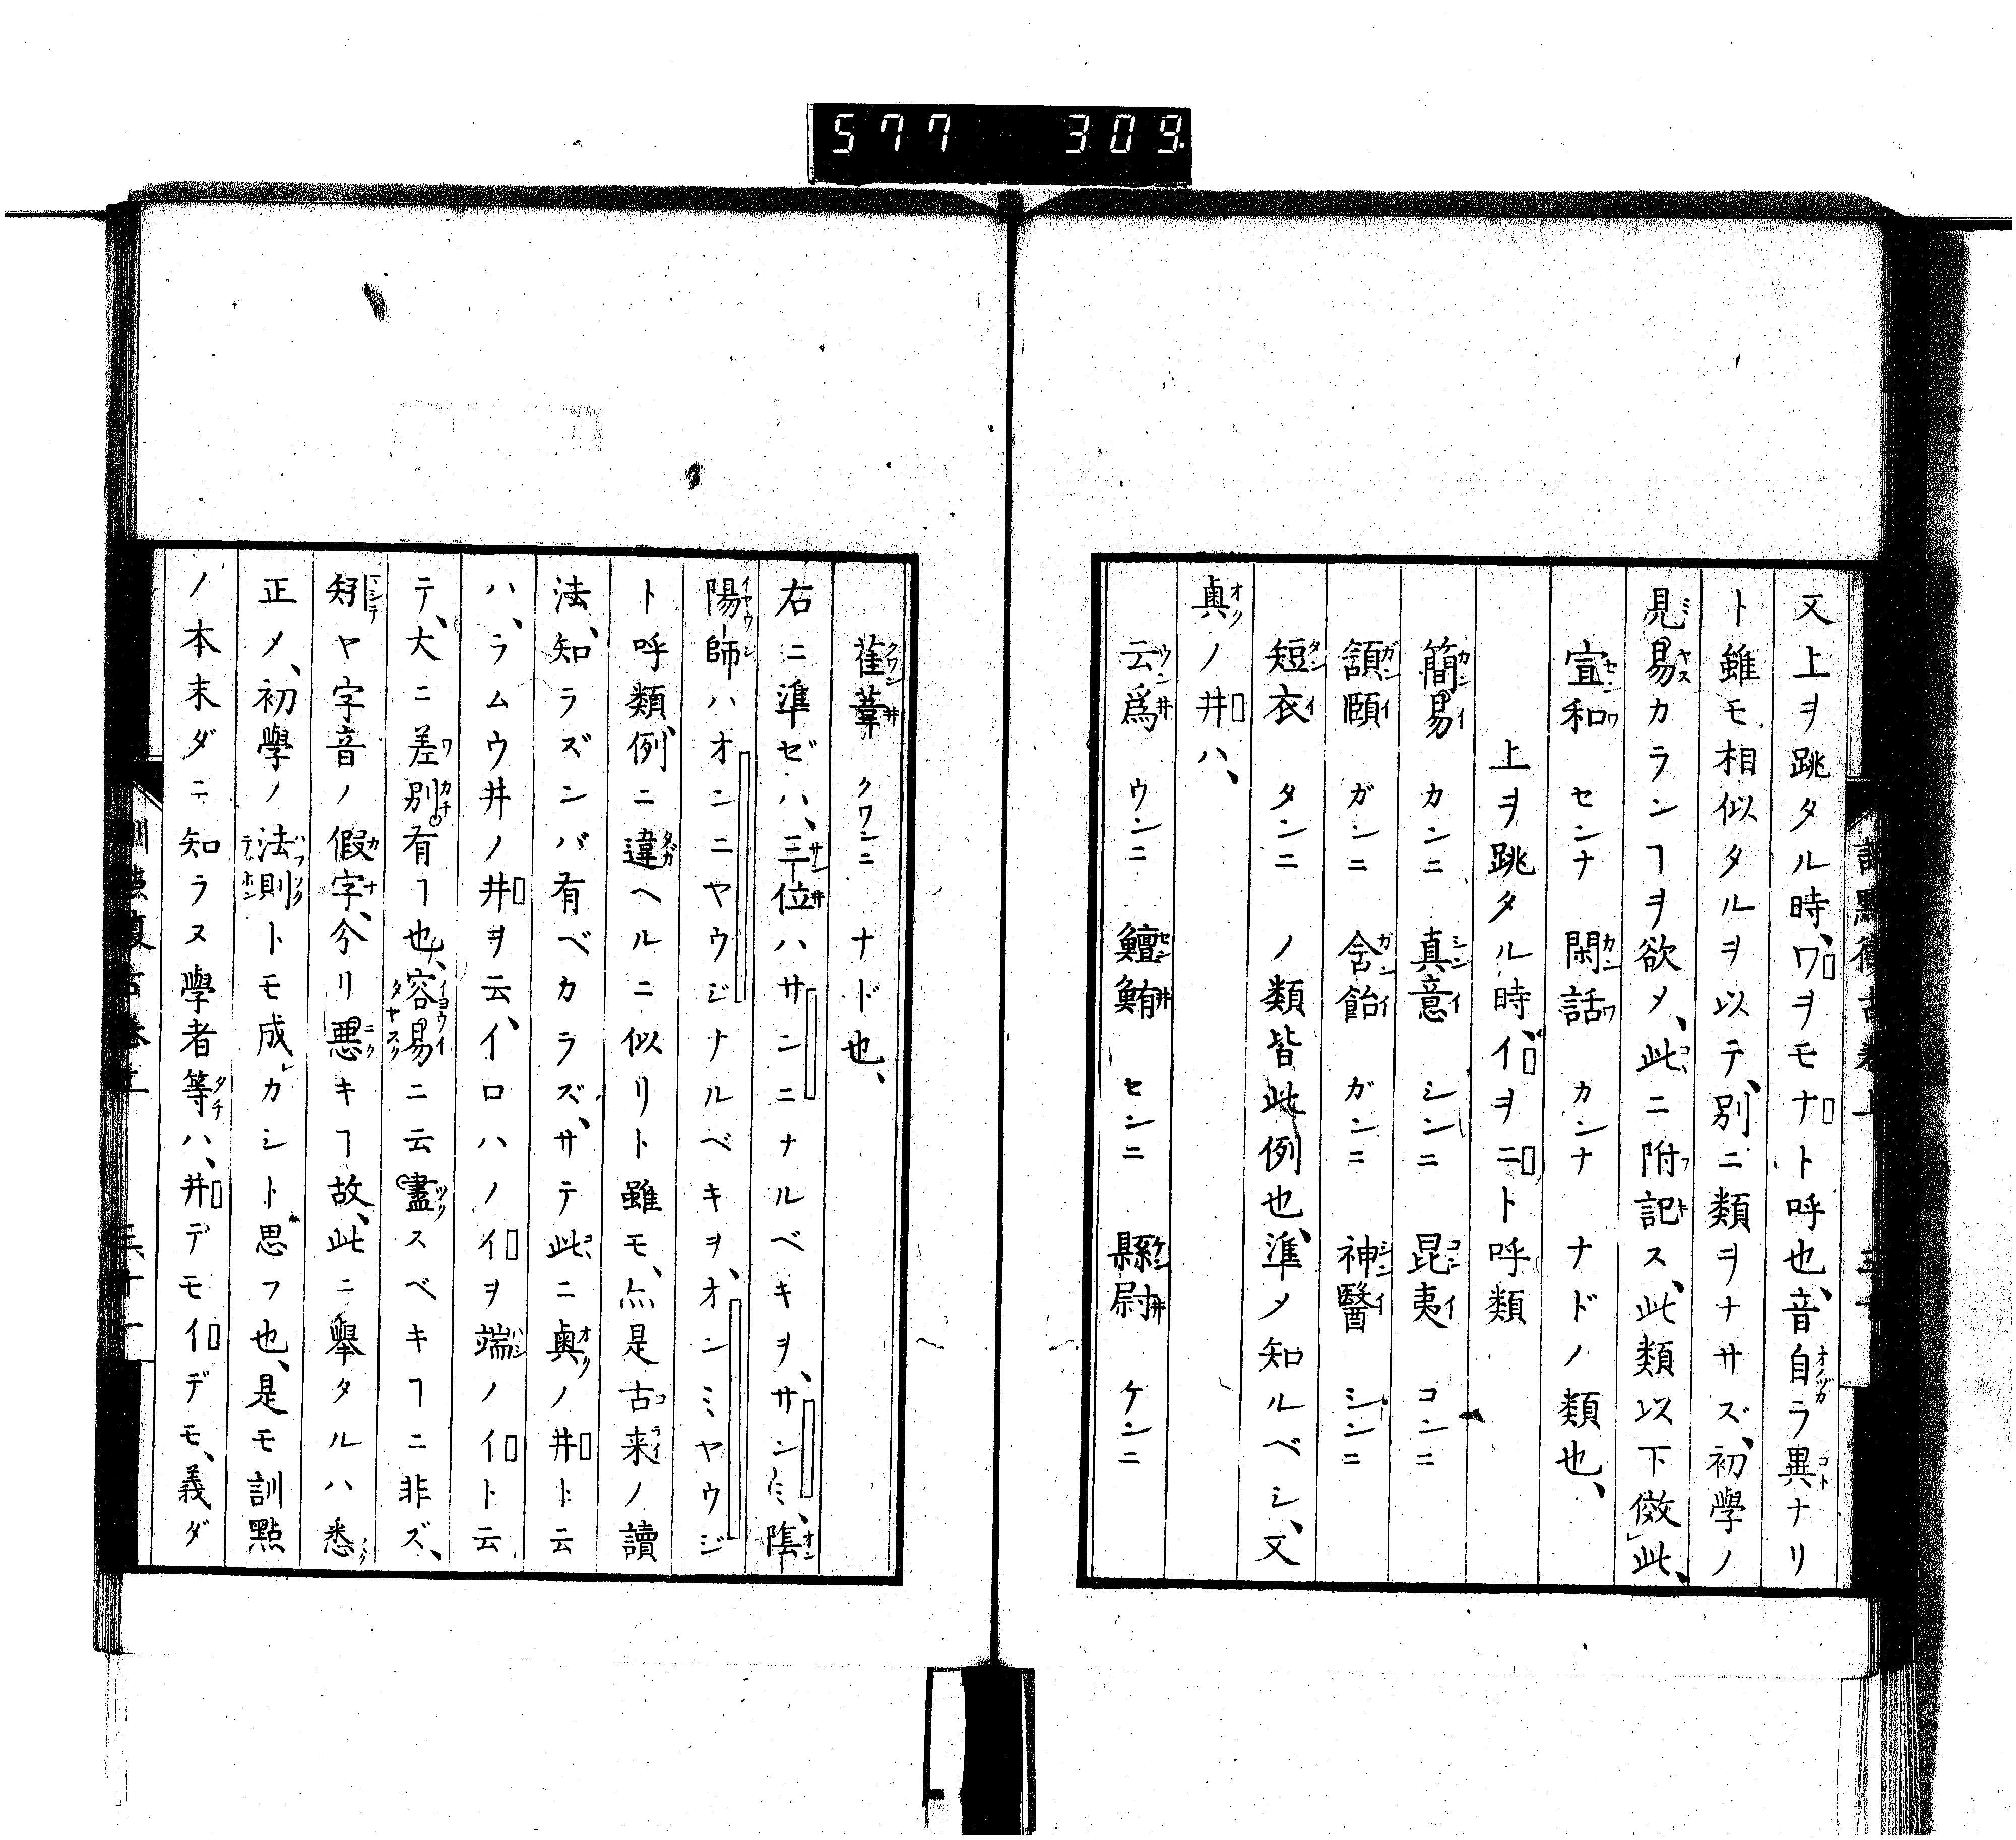 577 309
又上ヲ跳タル時、ワヲモナト呼也、音自ラ異ナリ
ト雖モ相似タルヲ以テ、別ニ類ヲナサズ、初學ノ
見易カランヿヲ欲メ、此ニ附記ス、此類以下傚此、
宣和 センナ 閑話 カンナ ナドノ類也、
上ヲ跳タル時、イヲニト呼類
簡易 カンニ 真意 シンニ 昆夷 コンニ
頷頤 ガンニ 含飴 ガンニ 神醫 シンニ
短衣 タンニ ノ類皆此例也、準メ知ルベシ、又
奥ノ井ハ、
云爲 ウンニ 鱣鮪 センニ 縣尉 ケンニ
萑葦 クワンニ ナド也、
右ニ準ゼハ、三位ハサンニナルベキヲ、サンミ、陰
陽師ハオンニヤウジナルベキヲ、オンミヤウジ
ト呼類、例ニ違ヘルニ似リト雖モ、亦是古来ノ讀
法、知ラズンバ有ベカラズ、サテ此ニ奥ノ井ト云
ハ、ラムウ井ノ井ヲ云、イロハノイヲ端ノイト云
テ、大ニ差別有ヿ也、容易ニ云盡スベキヿニ非ズ、
矧ヤ字音ノ假字、分リ悪キヿ故、此ニ舉タルハ悉
正メ、初學ノ法則トモ成カシト思フ也、是モ訓點
ノ本末ダニ知ラヌ學者等ハ、井デモイデモ、義ダ